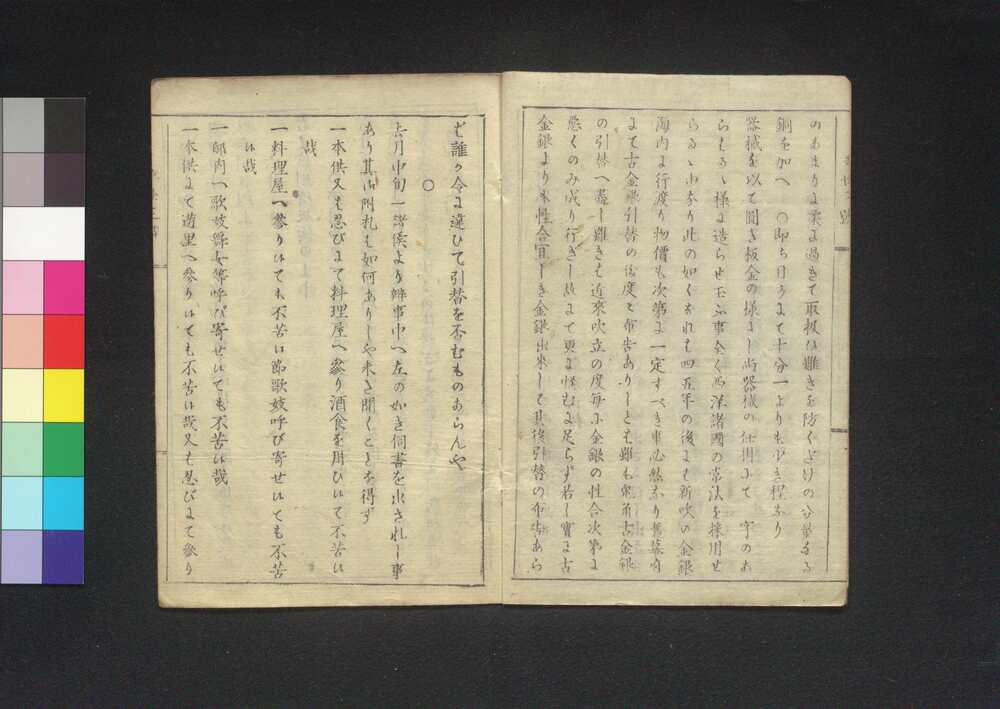 のあまりに柔に過きて取扱ひ難きを防くだけの分量なる
銅を加へ　○即ち目方にて十分一よりも少き程なり
器械を以て圓き板金の様にし尚器械の仕用にて　字のあ
らはるゝ様に造らせ玉ふ事全く西洋諸國の常法を採用せ
らるゝ由なり此の如くなれは四五年の後には新吹の金銀
海内に行度り物價も次第に一定すへき事必然なり舊幕府
にて古金銀引替の為度々布告ありしと雖も無前古金銀
の引替へ盡し難きは近來吹立の度毎に金銀の性合次第に
悪くのみ成り行ぎし故にて更に怪むに足らず若し實に古
金銀より性合宜しき金銀出来して其後引替の布告あら
ば誰か令に違ひて引替を否むものあらんや
○
去月中旬一諸侯より辨事中へ左の如き伺書を出されし事
あり其御附札は如何ありしや未き聞くことを得ず
一本供又は忍びにて料理屋へ參り酒食を用ひ候て不苦候
哉
一料理屋へ參り候ても不苦候節歌妓呼び寄せ候ても不苦
候哉
一邸内へ歌妓舞女等呼び寄せ候ても不苦候哉
一本供にて遊里へ參り候ても不苦候哉又は忍びにて參り